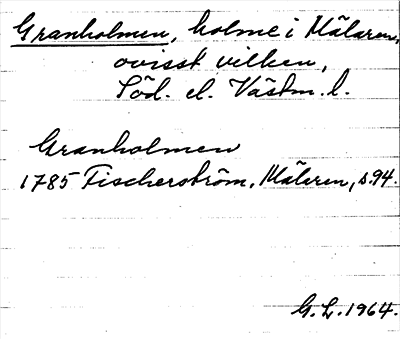 Granholmen, holme i Mälaren,
ovisst vilken,
Söd. el. Västm. l.
Granholmen
1785 Fischerström, Mälaren, s. 94.
G. L. 1964.